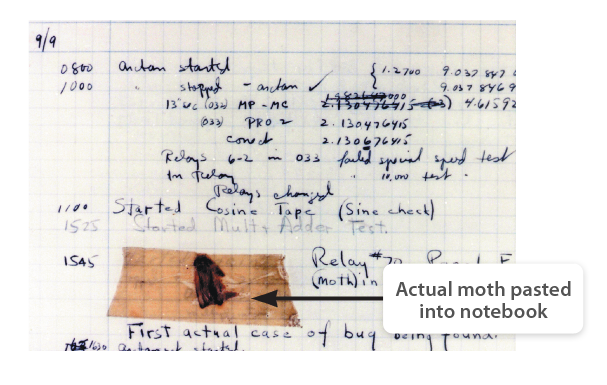 9/9
0800 Antan started
1000 " stopped - antan ✓ { 1.2700 9.037 847 0
9.037 846 9
13"uc (033) MP - MC 2.130476415 (-3) 4.6159
(033) PRO 2 2.130476415
2.130676415
Relays 6-2 in 033 failed special speed test
In Relay " 10,000 test.
Relays changed
1100 Started Cosine Tape (Sine check)
1525 Started Mult + Adder Test.
1545 Relay #70 Panel F
(Moth) in
Actual moth pasted
into notebook
First actual case of bug being found.
1630 antan started.